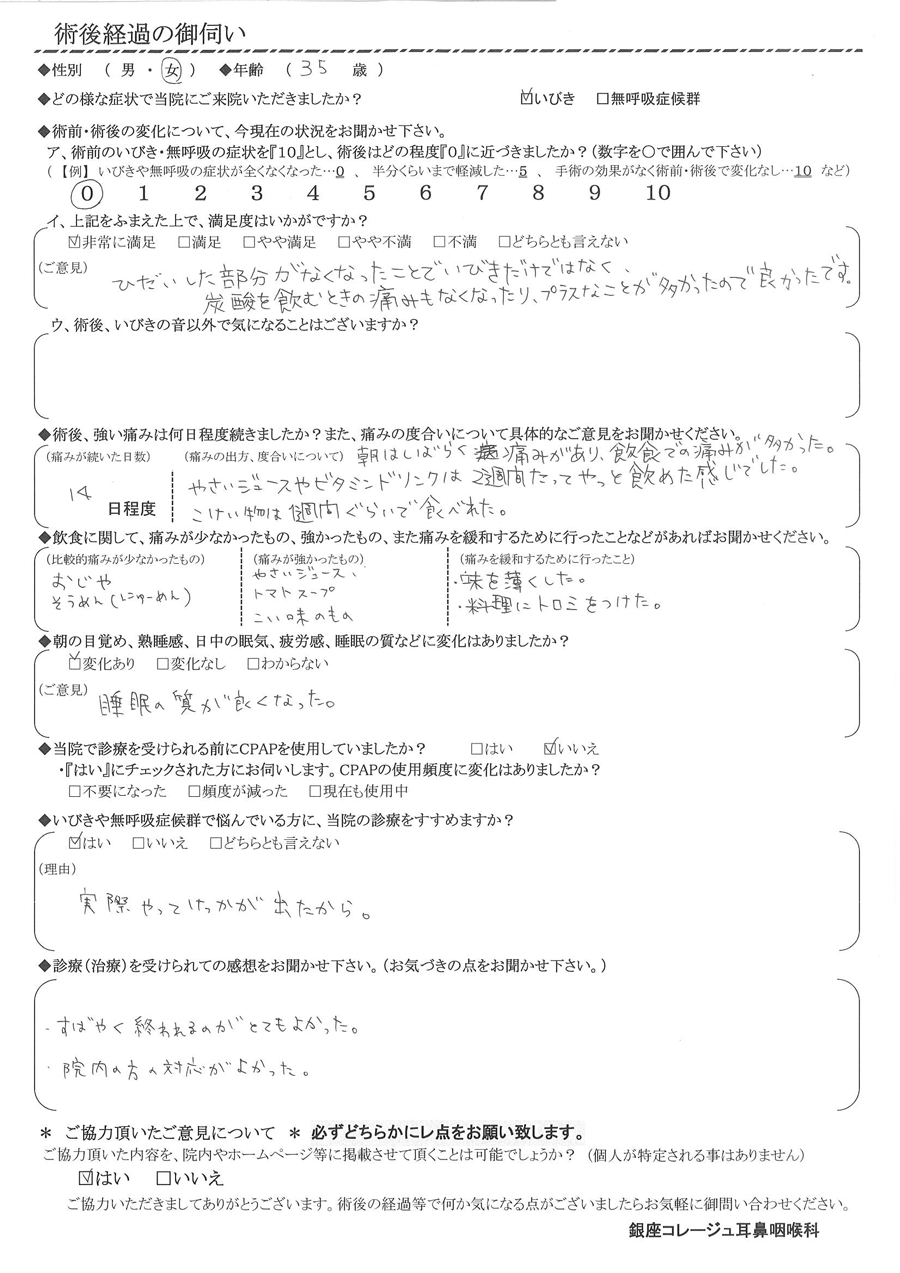 術後経過の御伺い
◆性別 ( 男 ・ 女 ) ◆年齢 ( 35 歳 )
◆どの様な症状で当院にご来院いただきましたか? ☑いびき □無呼吸症候群
◆術前・術後の変化について、今現在の状況をお聞かせ下さい。
ア、術前のいびき・無呼吸の症状を『10』とし、術後はどの程度『0』に近づきましたか?(数字を〇で囲んで下さい)
(【例】いびきや無呼吸の症状が全くなくなった…0 、 半分くらいまで軽減した…5 、 手術の効果がなく術前・術後で変化なし…10 など)
0 1 2 3 4 5 6 7 8 9 10
イ、上記をふまえた上で、満足度はいかがですか?
☑非常に満足 □満足 □やや満足 □やや不満 □不満 □どちらとも言えない
(ご意見) ひだいした部分がなくなったことでいびきだけではなく、
炭酸を飲むときの痛みもなくなったり、プラスなことが多かったので良かったです。
ウ、術後、いびきの音以外で気になることはございますか?
◆術後、強い痛みは何日程度続きましたか?また、痛みの度合いについて具体的なご意見をお聞かせください。
(痛みが続いた日数) (痛みの出方、度合いについて) 朝はしばらく痛みがあり、飲食での痛みが多かった。
やさいジュースやビタミンドリンクは2週間たってやっと飲めた感じでした。
14 日程度 こけい物は1週間ぐらいで食べれた。
◆飲食に関して、痛みが少なかったもの、強かったもの、また痛みを緩和するために行ったことなどがあればお聞かせください。
(比較的痛みが少なかったもの) (痛みが強かったもの) (痛みを緩和するために行ったこと)
おじや やさいジュース、 ・味を薄くした。
そうめん(にゅーめん) トマトスープ ・料理にトロミをつけた。
こい味のもの
◆朝の目覚め、熟睡感、日中の眠気、疲労感、睡眠の質などに変化はありましたか?
☑変化あり □変化なし □わからない
(ご意見) 睡眠の質が良くなった。
◆当院で診療を受けられる前にCPAPを使用していましたか? □はい ☑いいえ
・『はい』にチェックされた方にお伺いします。CPAPの使用頻度に変化はありましたか?
□不要になった □頻度が減った □現在も使用中
◆いびきや無呼吸症候群で悩んでいる方に、当院の診療をすすめますか?
☑はい □いいえ □どちらとも言えない
(理由)
実際やってけっかが出たから。
◆診療(治療)を受けられての感想をお聞かせ下さい。(お気づきの点をお聞かせ下さい。)
・すばやく終われるのがとてもよかった。
・院内の方の対応がよかった。
* ご協力頂いたご意見について * 必ずどちらかにレ点をお願い致します。
ご協力頂いた内容を、院内やホームページ等に掲載させて頂くことは可能でしょうか? (個人が特定される事はありません)
☑はい □いいえ
ご協力いただきましてありがとうございます。術後の経過等で何か気になる点がございましたらお気軽に御問い合わせください。
銀座コレージュ耳鼻咽喉科